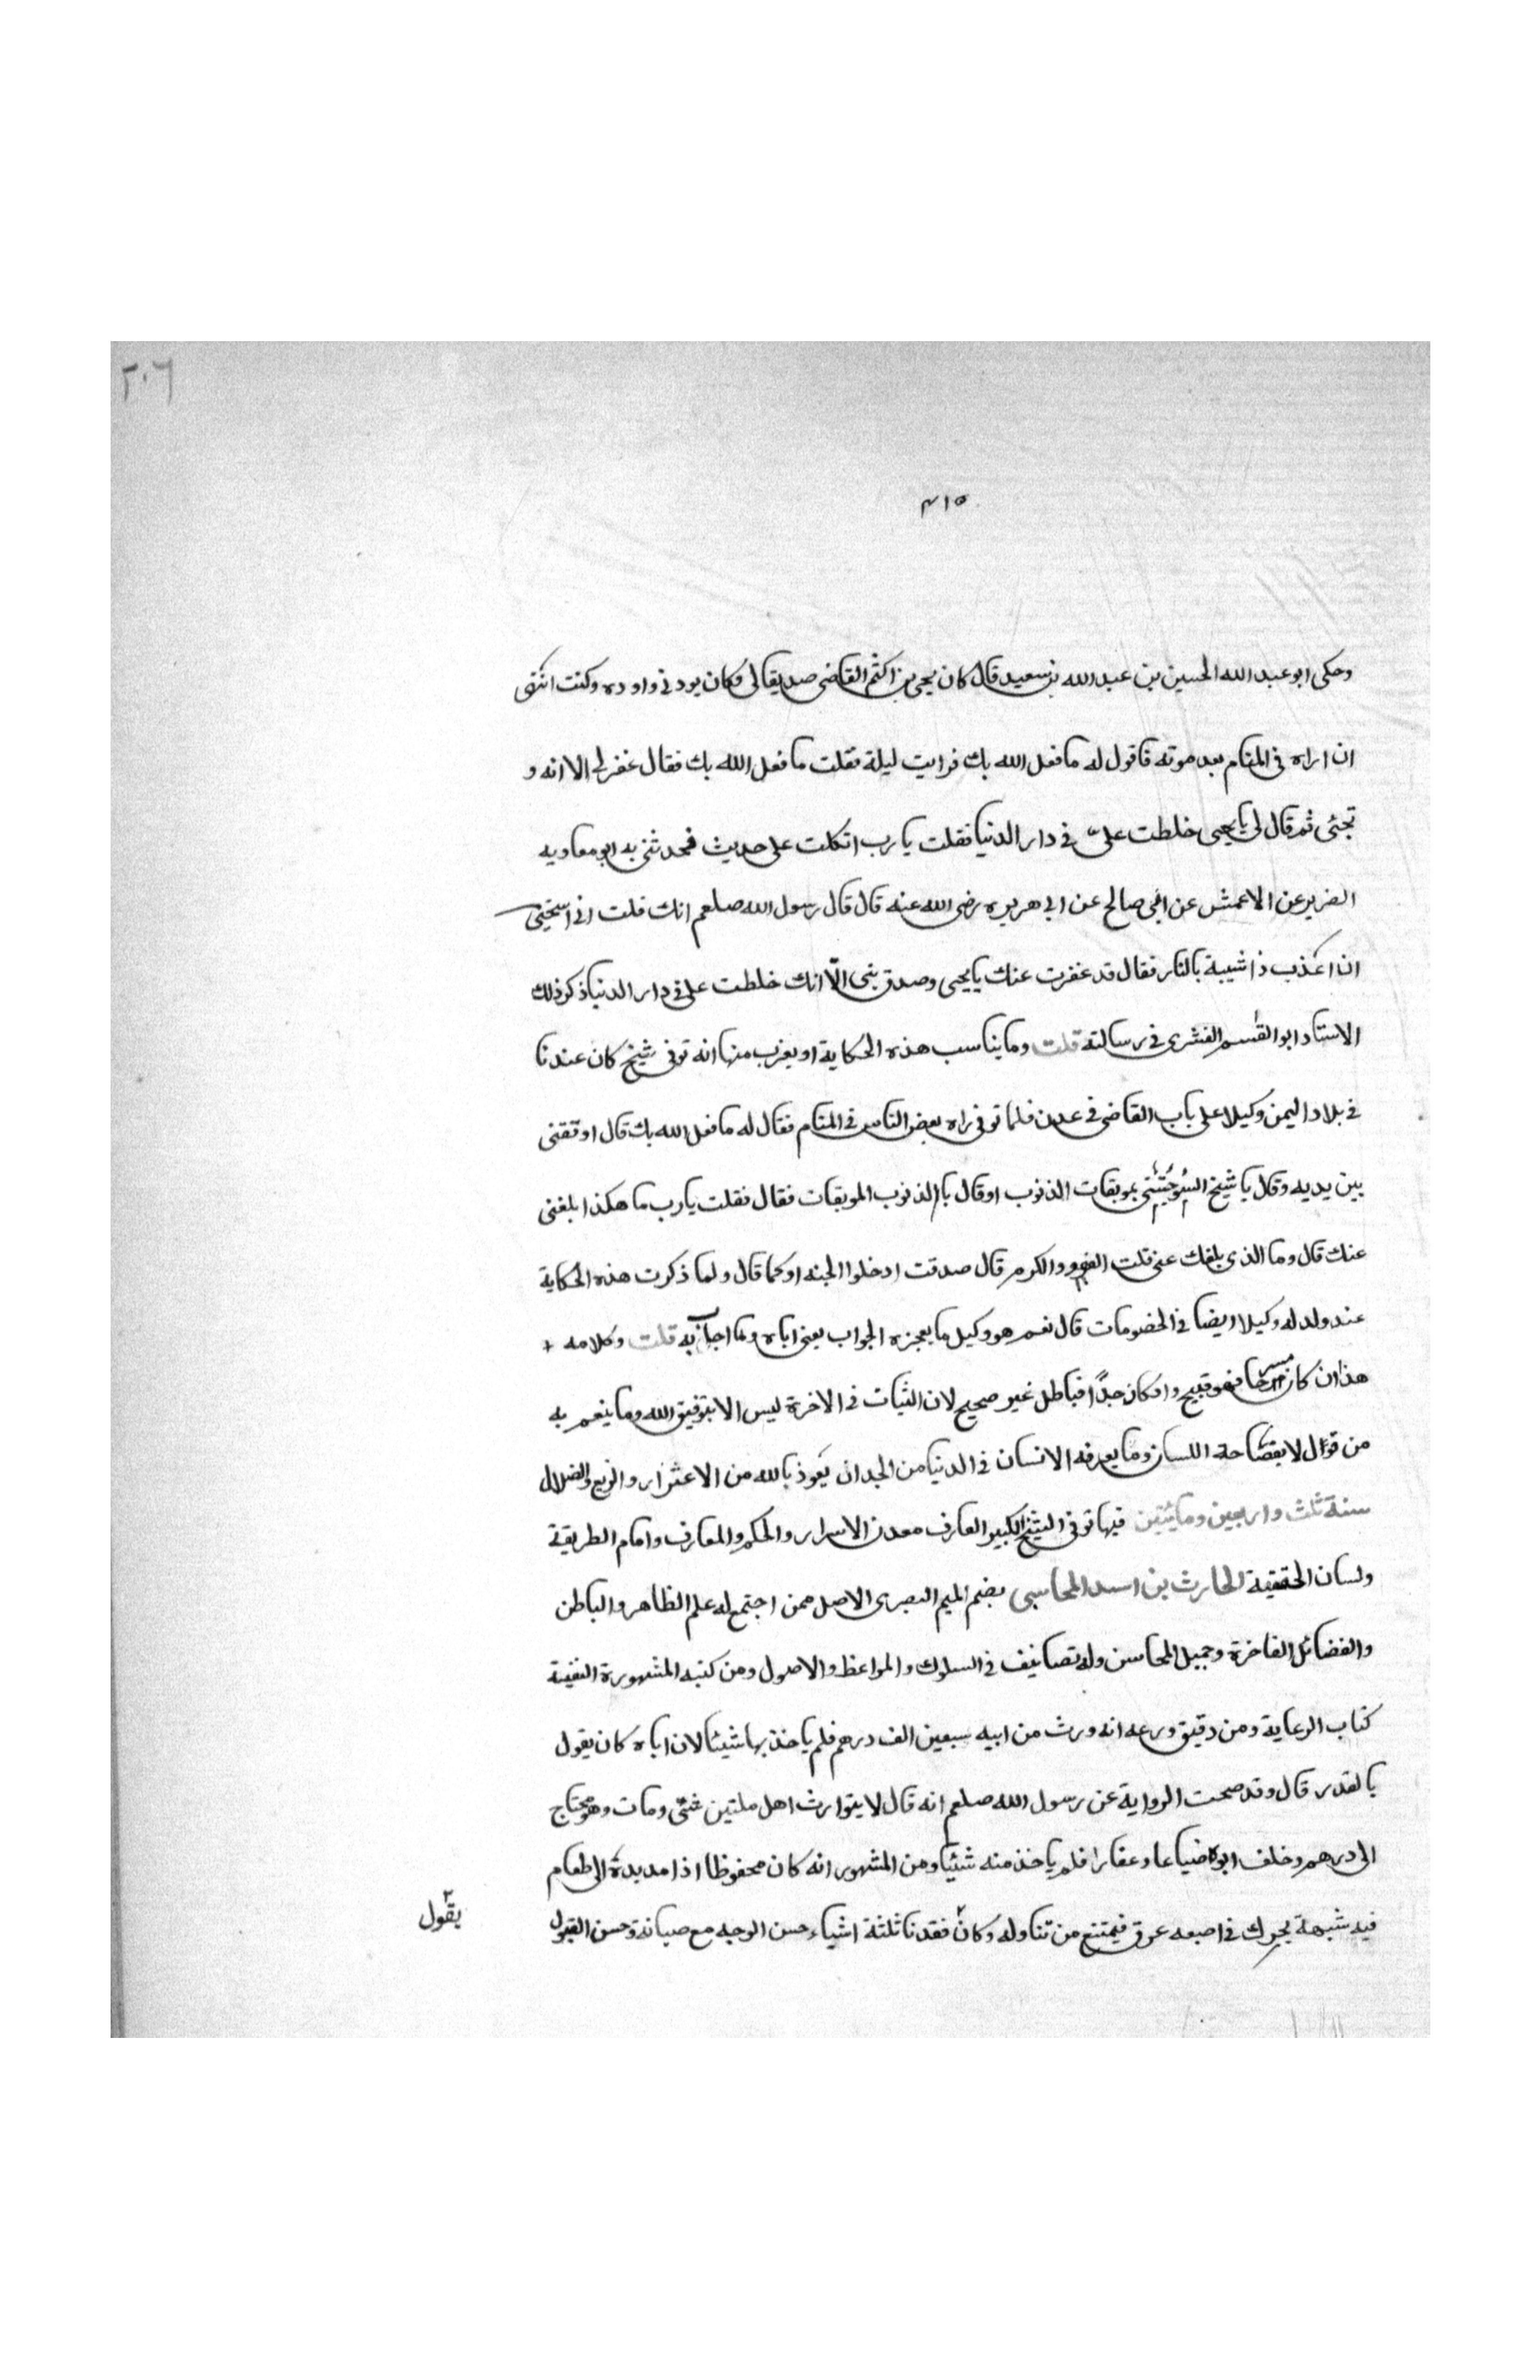 ٢٠٦
٤١٥
وحكى ابو عبد الله الحسين بن عبد الله بن سعيد قال كان يحيى بن اكثم القاضى صديقا لى وكان يودنى واوده وكنت اشتهى
ان اراه فى المنام بعد موته فاقول له ما فعل الله بك فرايت ليلة فقلت ما فعل الله بك فقال غفر لى الا انه و
بخنى ثم قال لى يا يحيى خلطت علىّ فى دار الدنيا فقلت يا رب اتكلت على حديث فحدثنى به ابو معاويه
الضرير عن الاعمش عن ابى صالح عن ابى هريره رضى الله عنه قال قال رسول الله صلعم انك قلت انى استحيى
ان اعذب ذا شيبة بالنار فقال قد غفرت عنك يا يحيى وصدق نبى الّا انك خلطت على فى دار الدنيا ذكر ذلك
الاستاد ابو القسم القشرى فى رسالته قلت وما يناسب هذه الحكاية او يغرب منها انه توفى شيخ كان عندنا
فى بلاد اليمن وكيلا على باب القاضى فى عدن فلما توفى راه بعض الناس فى المنام فقال له ما فعل الله بك قال اوقفنى
بين يديه وقال يا شيخ السوء جئتنى بموبقات الذنوب او قال بالذنوب الموبقات فقال فقلت يا رب ما هكذا بلغنى
عنك قال وما الذى بلغك عنى قلت العفو والكرم قال صدقت ادخلوا الجنه او كما قال ولما ذكرت هذه الحكاية
عند ولد له وكيلا ايضا فى الخصومات قال نعم هو وكيل ما يعجزه الجواب يعنى اباه وما اجاب به قلت وكلامه
هذا ان كان مزحا فهو قبيح وان كان جدّا فباطل غير صحيح لان الثبات فى الاخرة ليس الا بتوفيق الله وما ينعم به
من قول لا بفصاحة اللسان وما يعرفه الانسان فى الدنيا من الجدان نعوذ بالله من الاغترار والزيغ والضلال
سنة ثلث واربعين ومايتين فيها توفى الشيخ الكبير العارف معدن الاسرار والحكم والمعارف وامام الطريقة
ولسان الحقيقة الحارث بن اسد المحاسبى بضم الميم البصرى الاصل ممن اجتمع له علم الظاهر والباطن
والفضائل الفاخرة وجميل المحاسن وله تصانيف فى السلوك والمواعظ والاصول ومن كتبه المشهورة النفيسة
كتاب الرعاية ومن دقيق ورعه انه ورث من ابيه سبعين الف درهم فلم ياخذ بها شيئا لان اباه كان يقول
بالقدر قال وقد صحت الرواية عن رسول الله صلعم انه قال لا يتوارث اهل ملتين شئى ومات وهو محتاج
الى درهم وخلف ابوه ضياعا وعقارا فلم ياخذ منه شيئا ومن المشهور انه كان محفوظا اذا مد يده الى طعام
فيه شبهة يحرك فى اصبعه عرق فيمتنع من تناوله وكان فقدنا ثلثة اشياء حسن الوجه مع صيانة وحسن القول
يقول